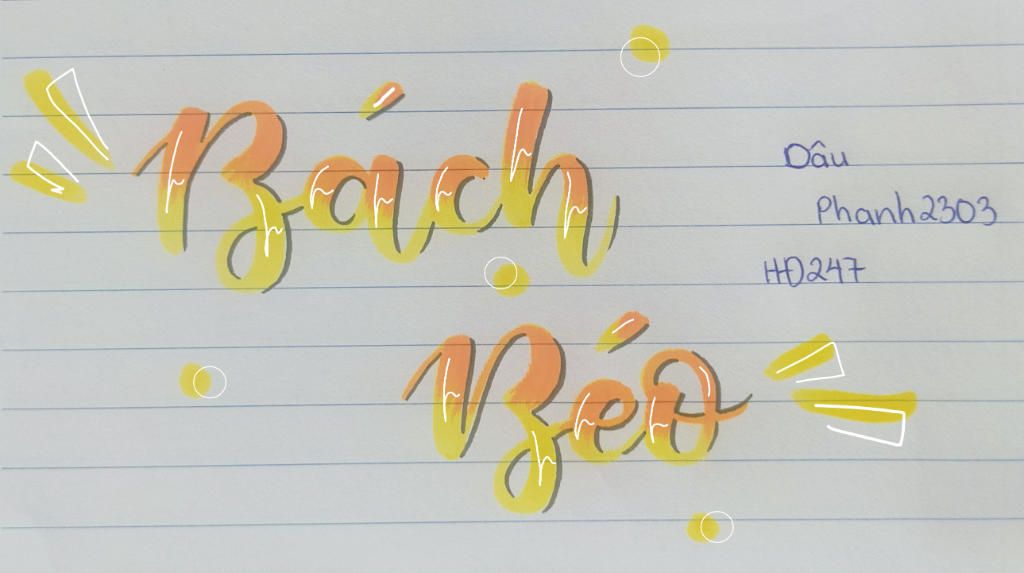 Bách
Béo
Dâu
Phanh2303
HĐ247